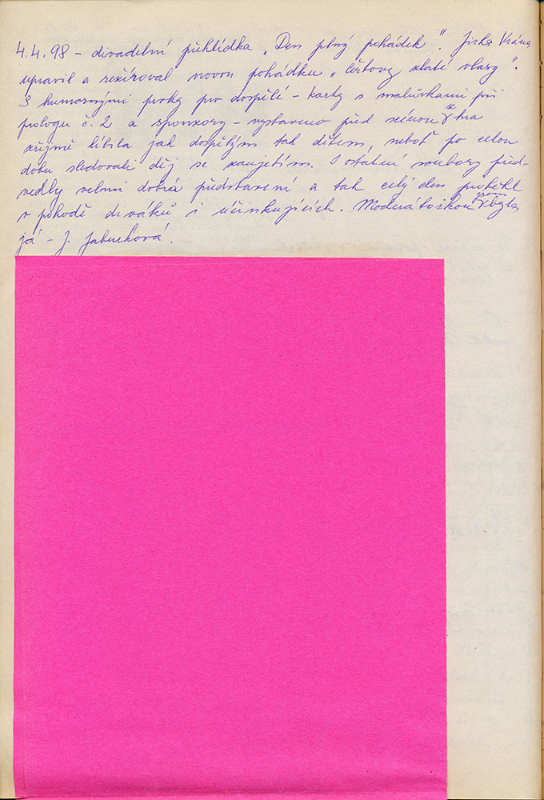 4.4.98 – divadelní přehlídka „Den plný pohádek". Jirka Vrána
upravil a režíroval novou pohádku „Čertovy zlaté vlasy".
S humornými prvky pro dospělé – karty s malůvkami při
prologu č. 2 a sponzory – vystaveno před scénou × hra
zřejmě líbila jak dospělým tak dětem, neboť po celou
dobu sledovali děj se zaujetím. I ostatní soubory před-
vedly velmi dobrá představení a tak celý den protekl
v pohodě diváků i účinkujících. Moderátorkou × jsem byla
já – J. Jabuchová.